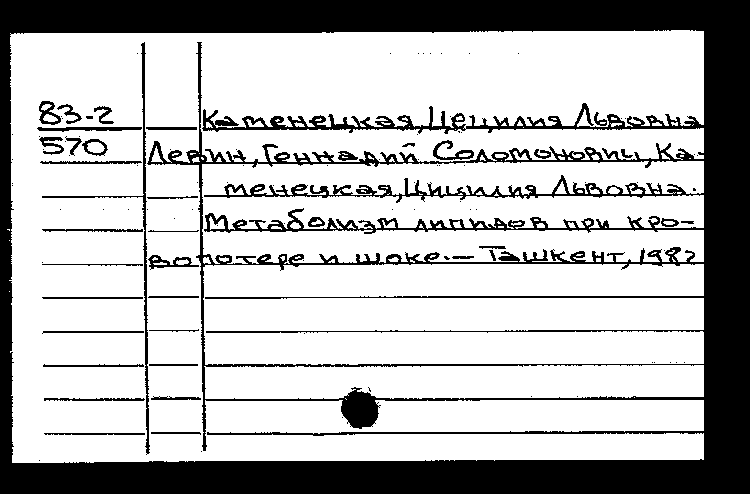 83-2 Каменецкая, Цецилия Львовна
570 Левин, Геннадий Соломонович, Ка-
менецкая, Цицилия Львовна.
Метаболизм липидов при кро-
вопотере и шоке. — Ташкент, 1982